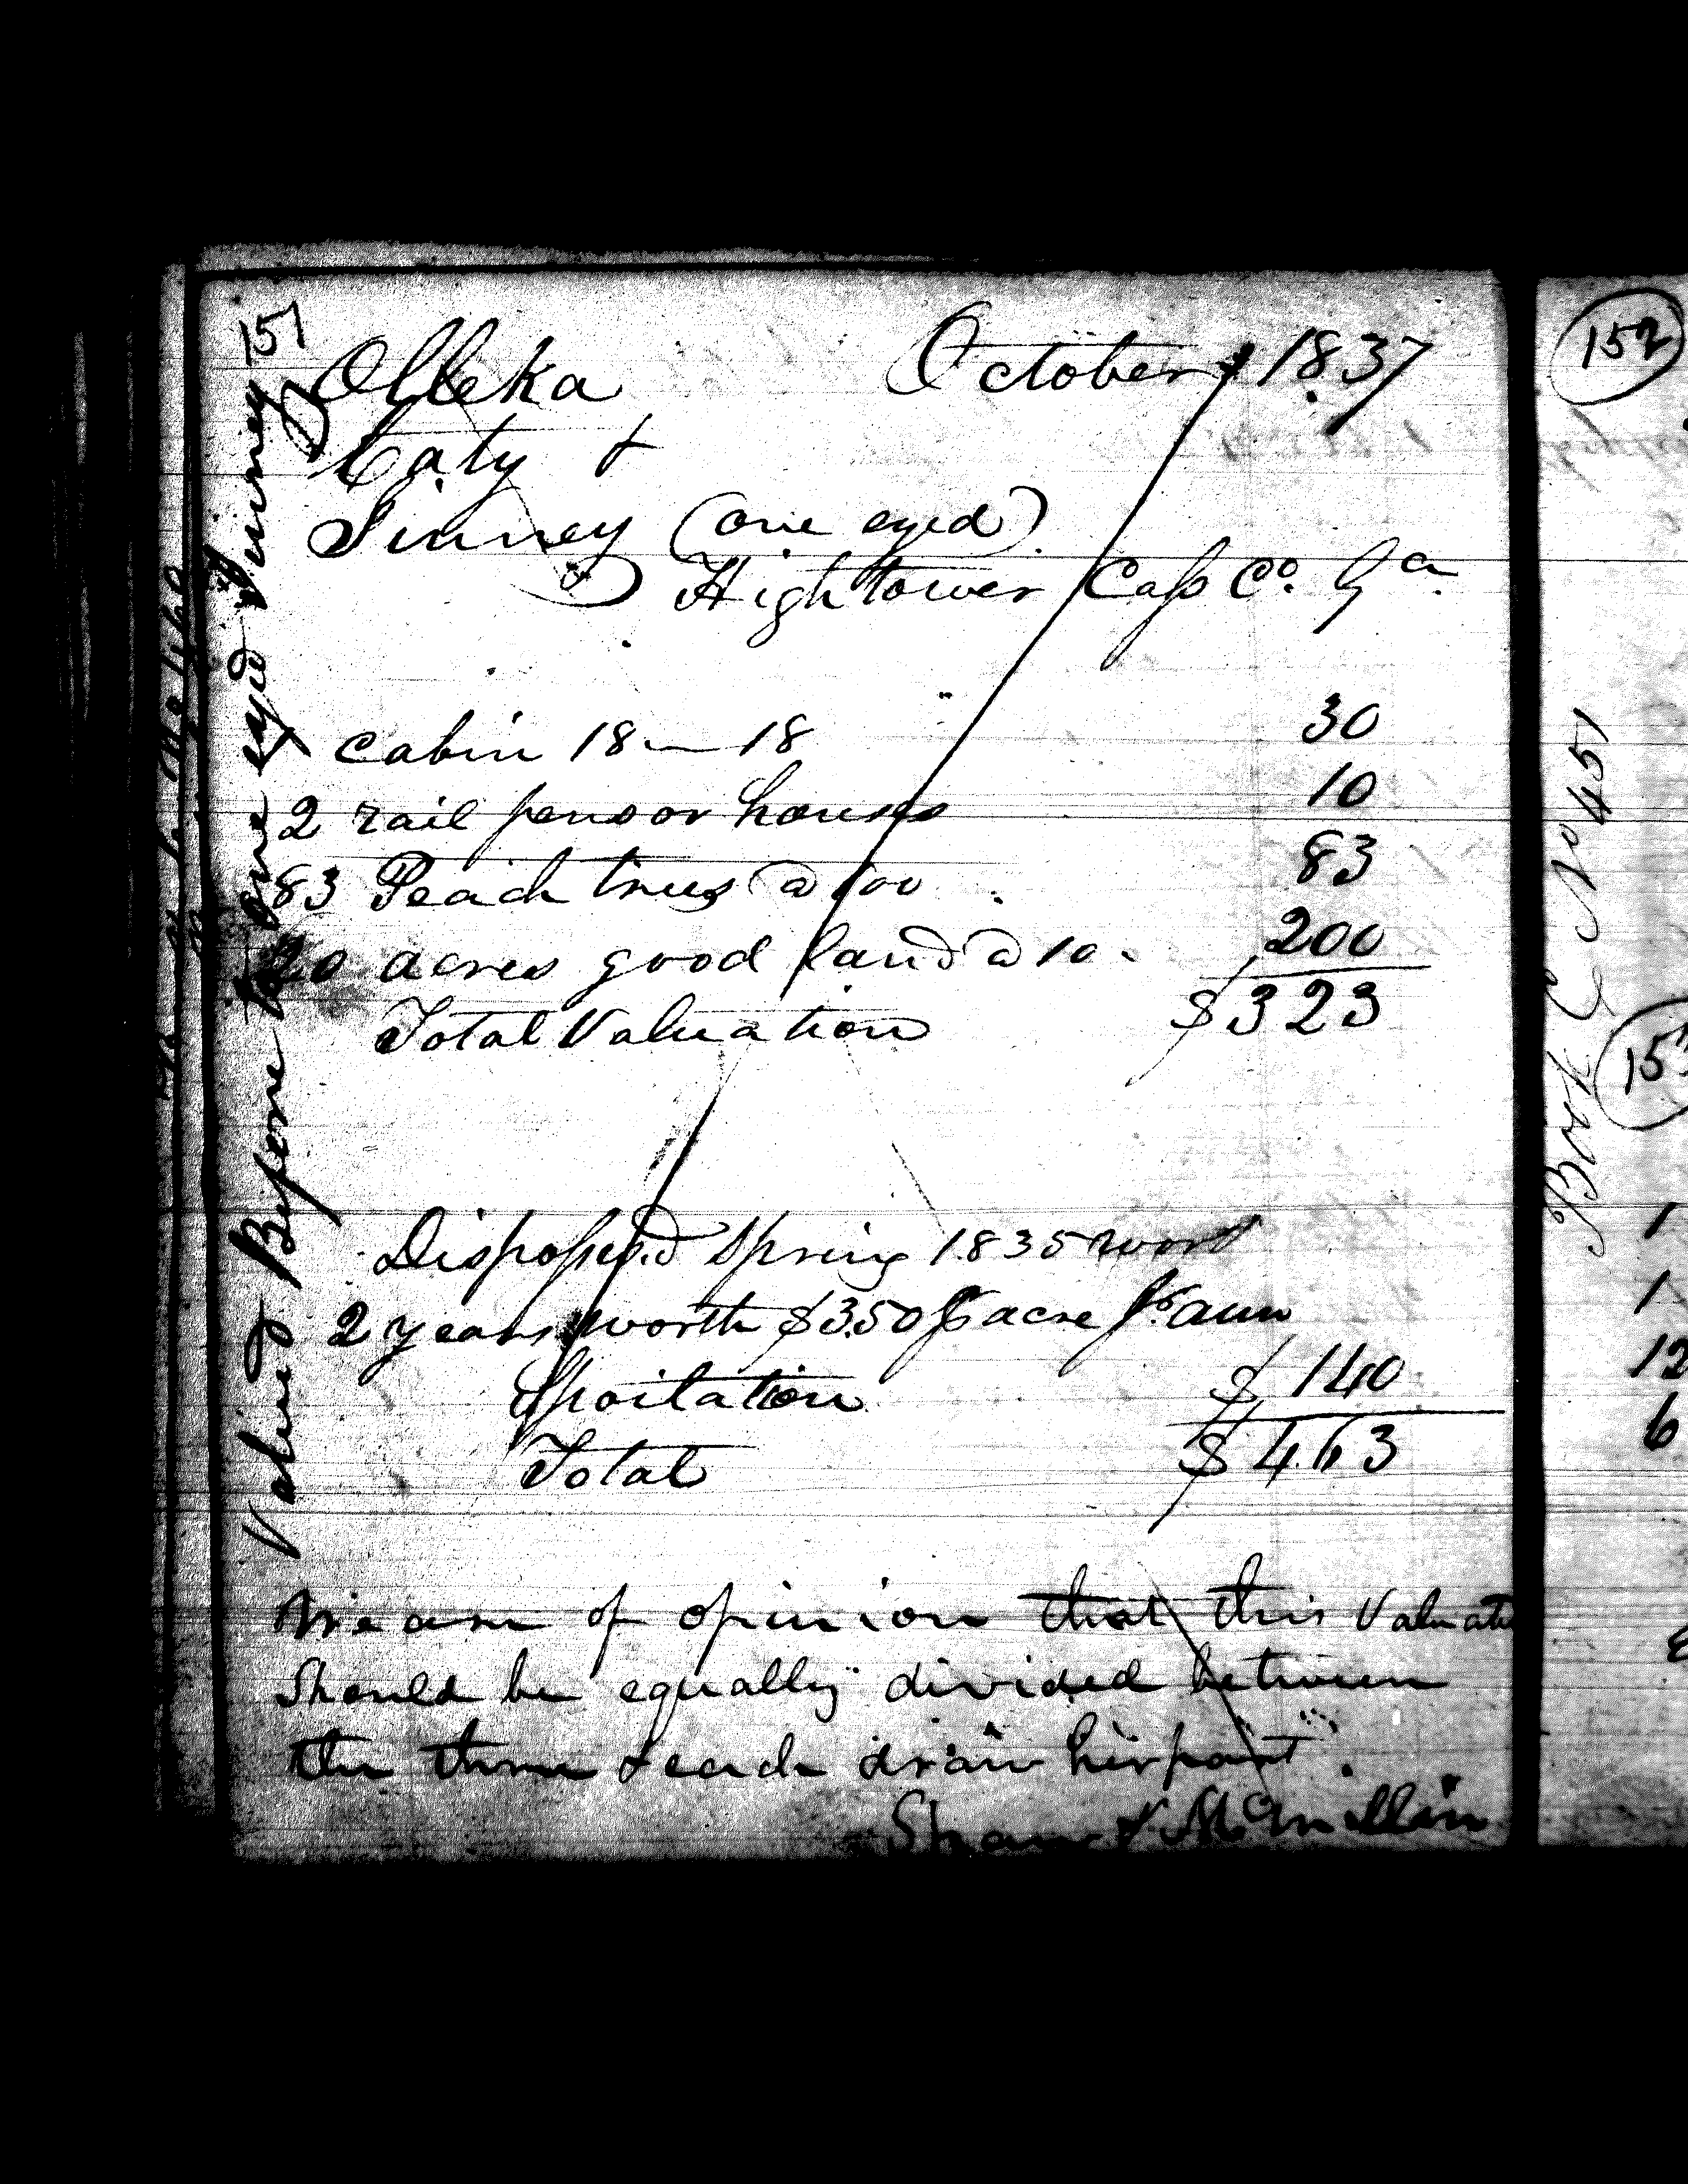 151
Olleka October 1837
Caty &
Sinney (one eyed)
Hightower Cass Co. Ga.
Cabin 18 — 18 30
2 rail pens or houses 10
83 Peach trees @ 100 83
20 acres good land @ 10. 200
Total Valuation $323
Disposses.d Spring 1835 wort
2 years worth $3.50 pr acre pr ann
Spoilation $140
Total $463
We are of opinion that this Valuati
Should be equally divided between
the three & each draw her part.
Shaw & McMillin
Valued Before to one eyed Sinney
152
Book C No 451
153
1
1
12
6